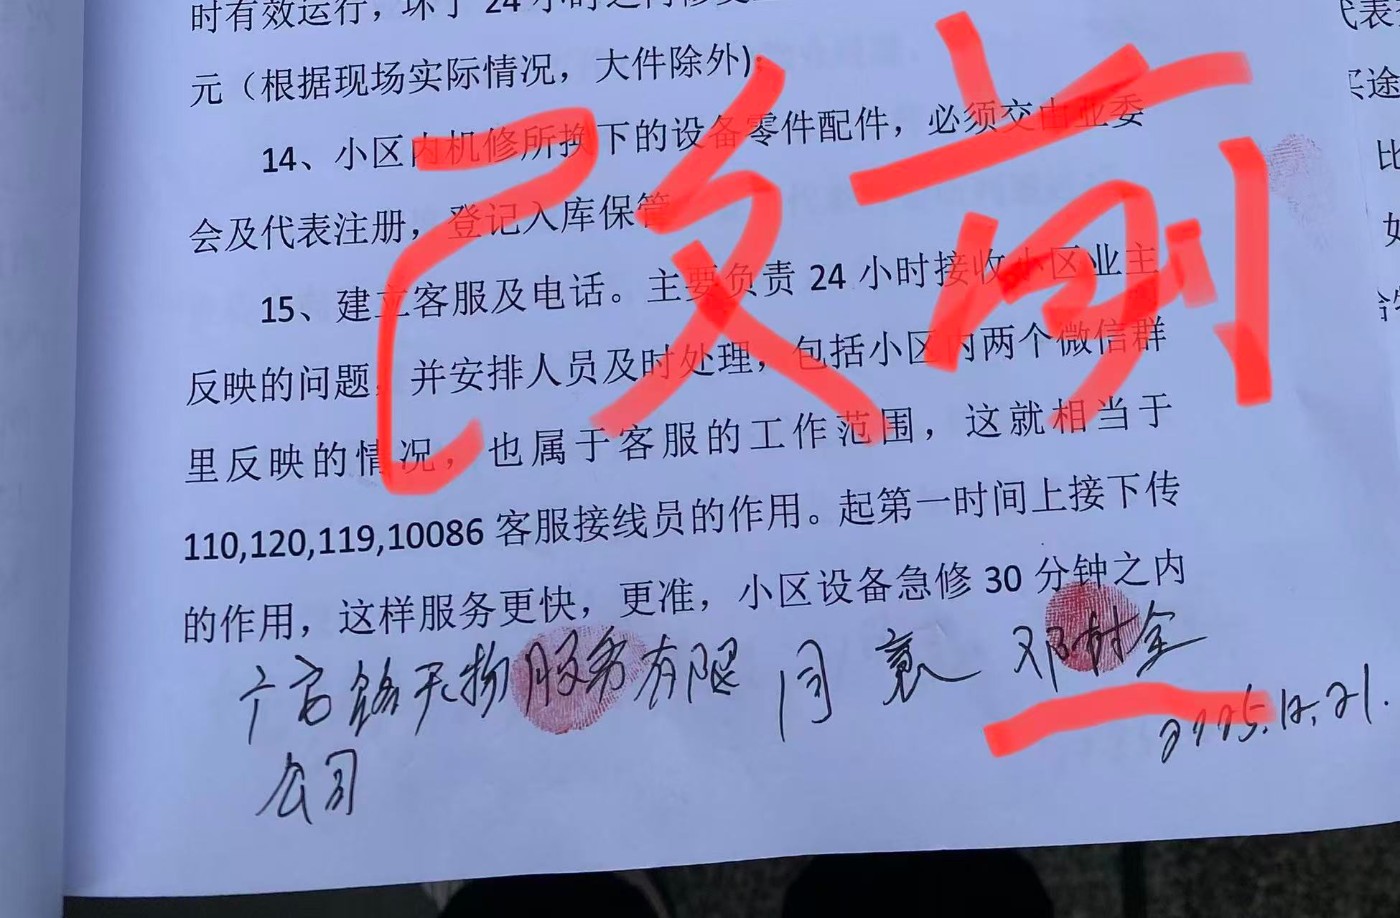 时有效运行，坏于 24 小时之内修复
元（根据现场实际情况，大件除外);
14、小区内机修所换下的设备零件配件，必须交由业委
会及代表注册，登记入库保管
15、建立客服及电话。主要负责 24 小时接收小区业主
反映的问题，并安排人员及时处理，包括小区内两个微信群
里反映的情况，也属于客服的工作范围，这就相当于
110,120,119,10086 客服接线员的作用。起第一时间上接下传
的作用，这样服务更快，更准，小区设备急修 30 分钟之内
改前
物服务有限
公司
邓树全
2025.12.21.
代表
买途
比
如